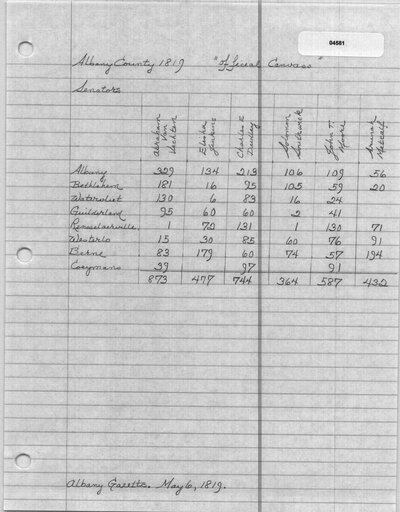 04581
Albany County 1819 "Official Canvass"
Senators
Abraham Van Vechten Elisha Jenkins Charles E. Dudley Solomon Southwick John T. Moore Metcalf
Albany 329 134 213 106 109 56
Bethlehem 181 16 95 105 59 20
Watervliet 130 6 83 16 24
Guilderland 95 60 60 2 41
Rensselaerville 1 72 131 1 130 71
Westerlo 15 30 85 60 76 91
Berne 83 179 60 74 57 194
Coeymans 39 97 91
873 497 744 364 587 432
Albany Gazette. May 6, 1819.